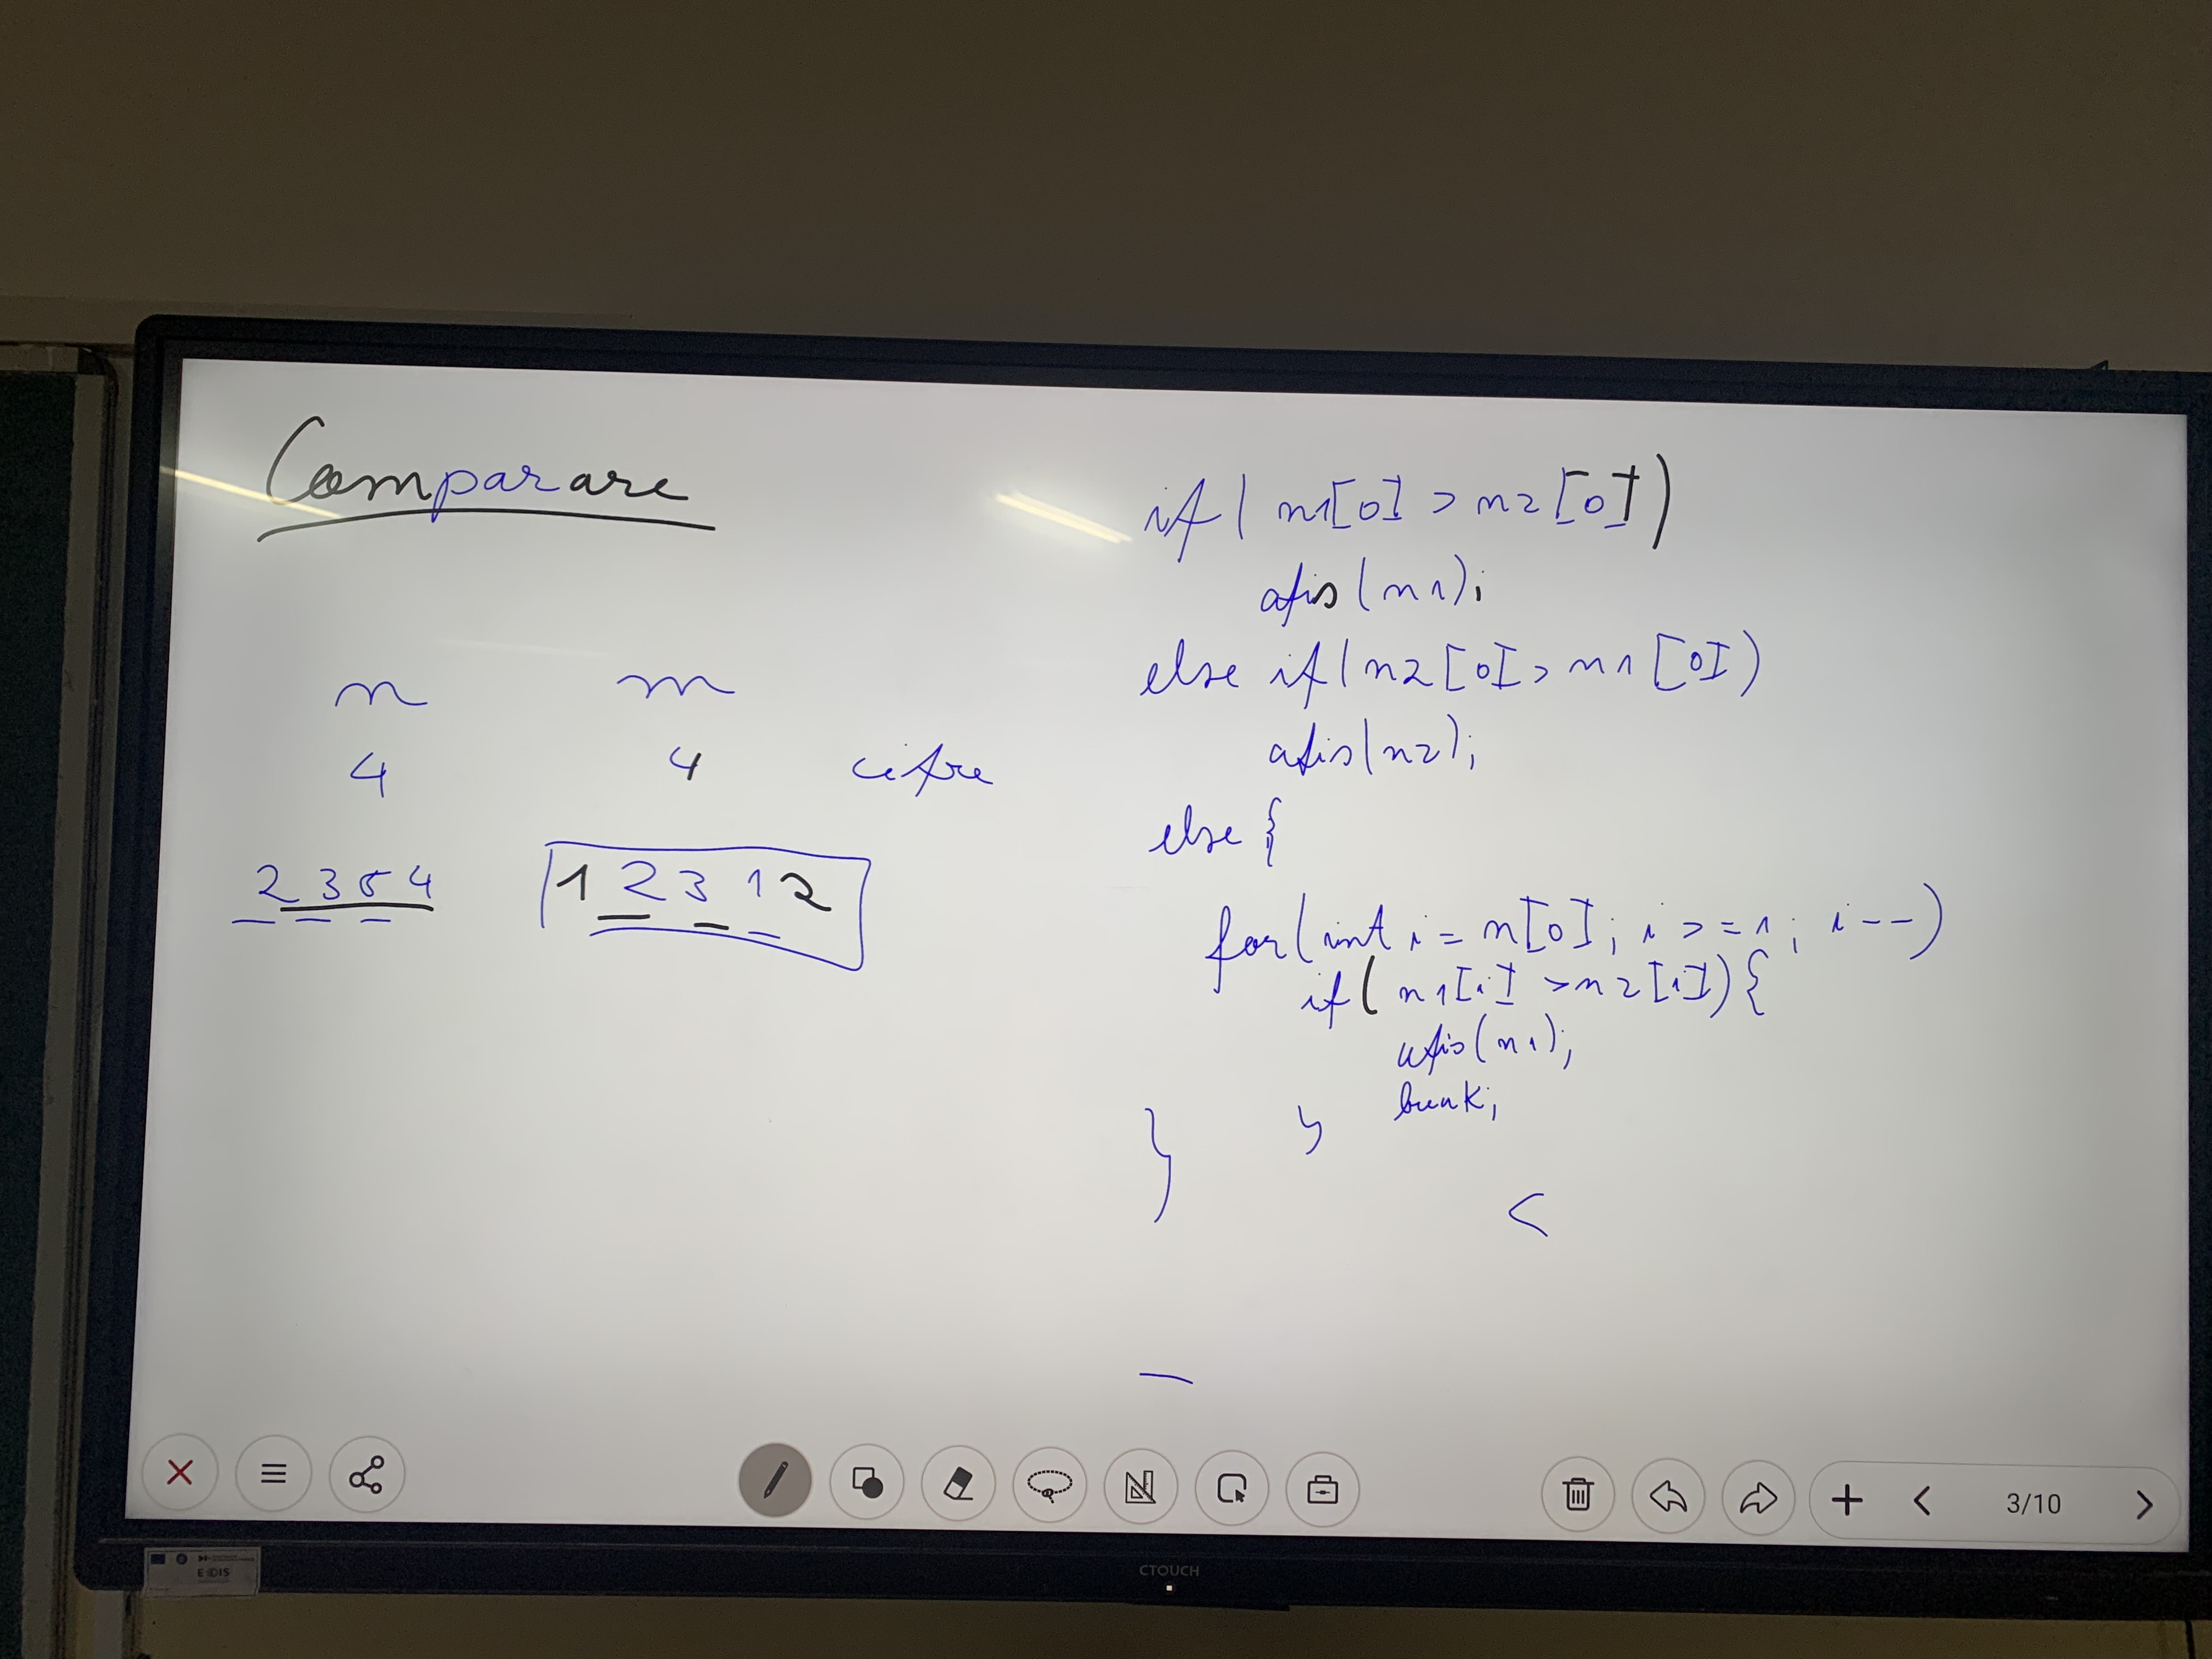 Comparare
n m
4 4 cifre
2 3 5 4 1 2 3 1 2
if( n1[0] > n2[0])
afis(n1);
else if(n2[0]> n1[0])
afis(n2);
else {
for(int i = n[0]; i >= 1; i--)
if( n1[i] > n2[i]){
afis(n1);
break;
}
}
<
3/10
CTOUCH